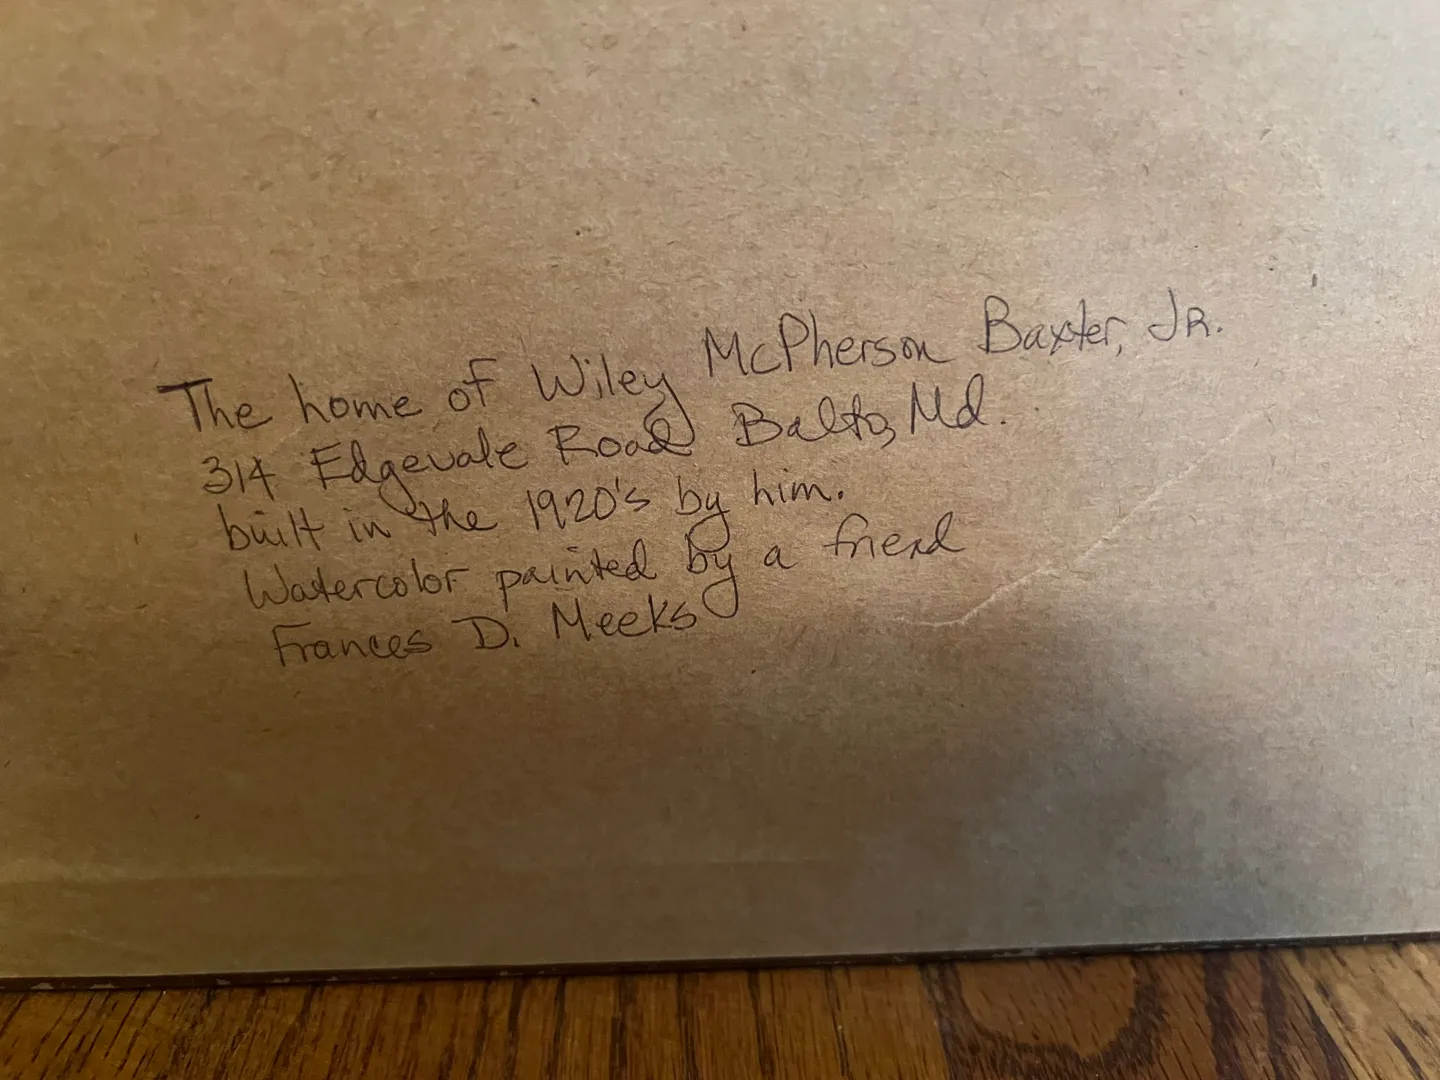 The home of Wiley McPherson Baxter, Jr.
314 Edgevale Road Balto, Md.
built in the 1920's by him.
Watercolor painted by a friend
Frances D. Meeks